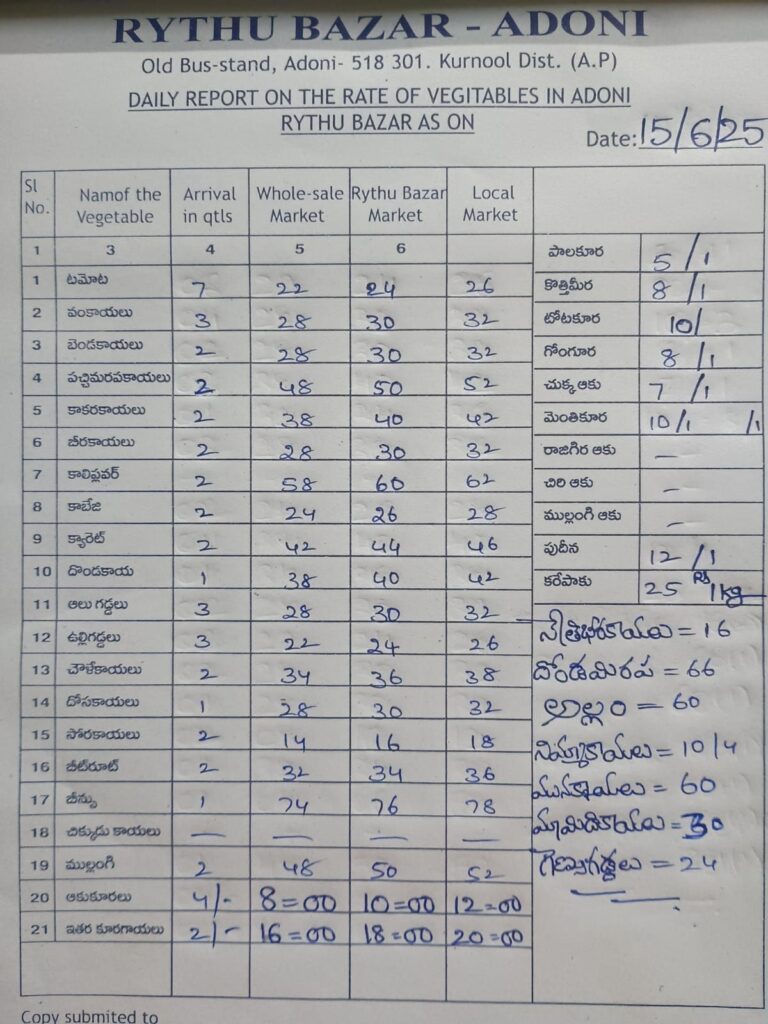 RYTHU BAZAR - ADONI
Old Bus-stand, Adoni- 518 301. Kurnool Dist. (A.P)
DAILY REPORT ON THE RATE OF VEGITABLES IN ADONI
RYTHU BAZAR AS ON
Date: 15/6/25
Sl No. Namof the Vegetable Arrival in qtls Whole-sale Market Rythu Bazar Market Local Market
1 3 4 5 6
1 టమోట 7 22 24 26
2 వంకాయలు 3 28 30 32
3 బెండకాయలు 2 28 30 32
4 పచ్చిమరపకాయలు 2 48 50 52
5 కాకరకాయలు 2 38 40 42
6 బీరకాయలు 2 28 30 32
7 కాలిఫ్లవర్ 2 58 60 62
8 కాబేజి 2 24 26 28
9 క్యారెట్ 2 42 44 46
10 దొండకాయ 1 38 40 42
11 ఆలు గడ్డలు 3 28 30 32
12 ఉల్లిగడ్డలు 3 22 24 26
13 చౌళేకాయలు 2 34 36 38
14 దోసకాయలు 1 28 30 32
15 సోరకాయలు 2 14 16 18
16 బీట్‌రూట్ 2 32 34 36
17 బీన్సు 1 74 76 78
18 చిక్కుడు కాయలు — — —  —
19 ముల్లంగి 2 48 50 52
20 ఆకుకూరలు 4/- 8=00 10=00 12=00
21 ఇతర కూరగాయలు 2/- 16=00 18=00 20=00
పాలకూర 5/1
కొత్తిమీర 8/1
టోటకూర 10/
గోంగూర 8/1
చుక్క ఆకు 7/1
మెంతికూర 10/1 /1
రాజగిర ఆకు —
చిరి ఆకు —
ముల్లంగి ఆకు —
పుదీన 12/1
కరేపాకు 25 Rs 1kg
= 16
దోండమిరప = 66
అల్లం = 60
నిమ్మకాయలు = 10/4
మునక్కాయలు = 60
మామిడికాయలు = 30
గెణుసుగడ్డలు = 24
Copy submited to